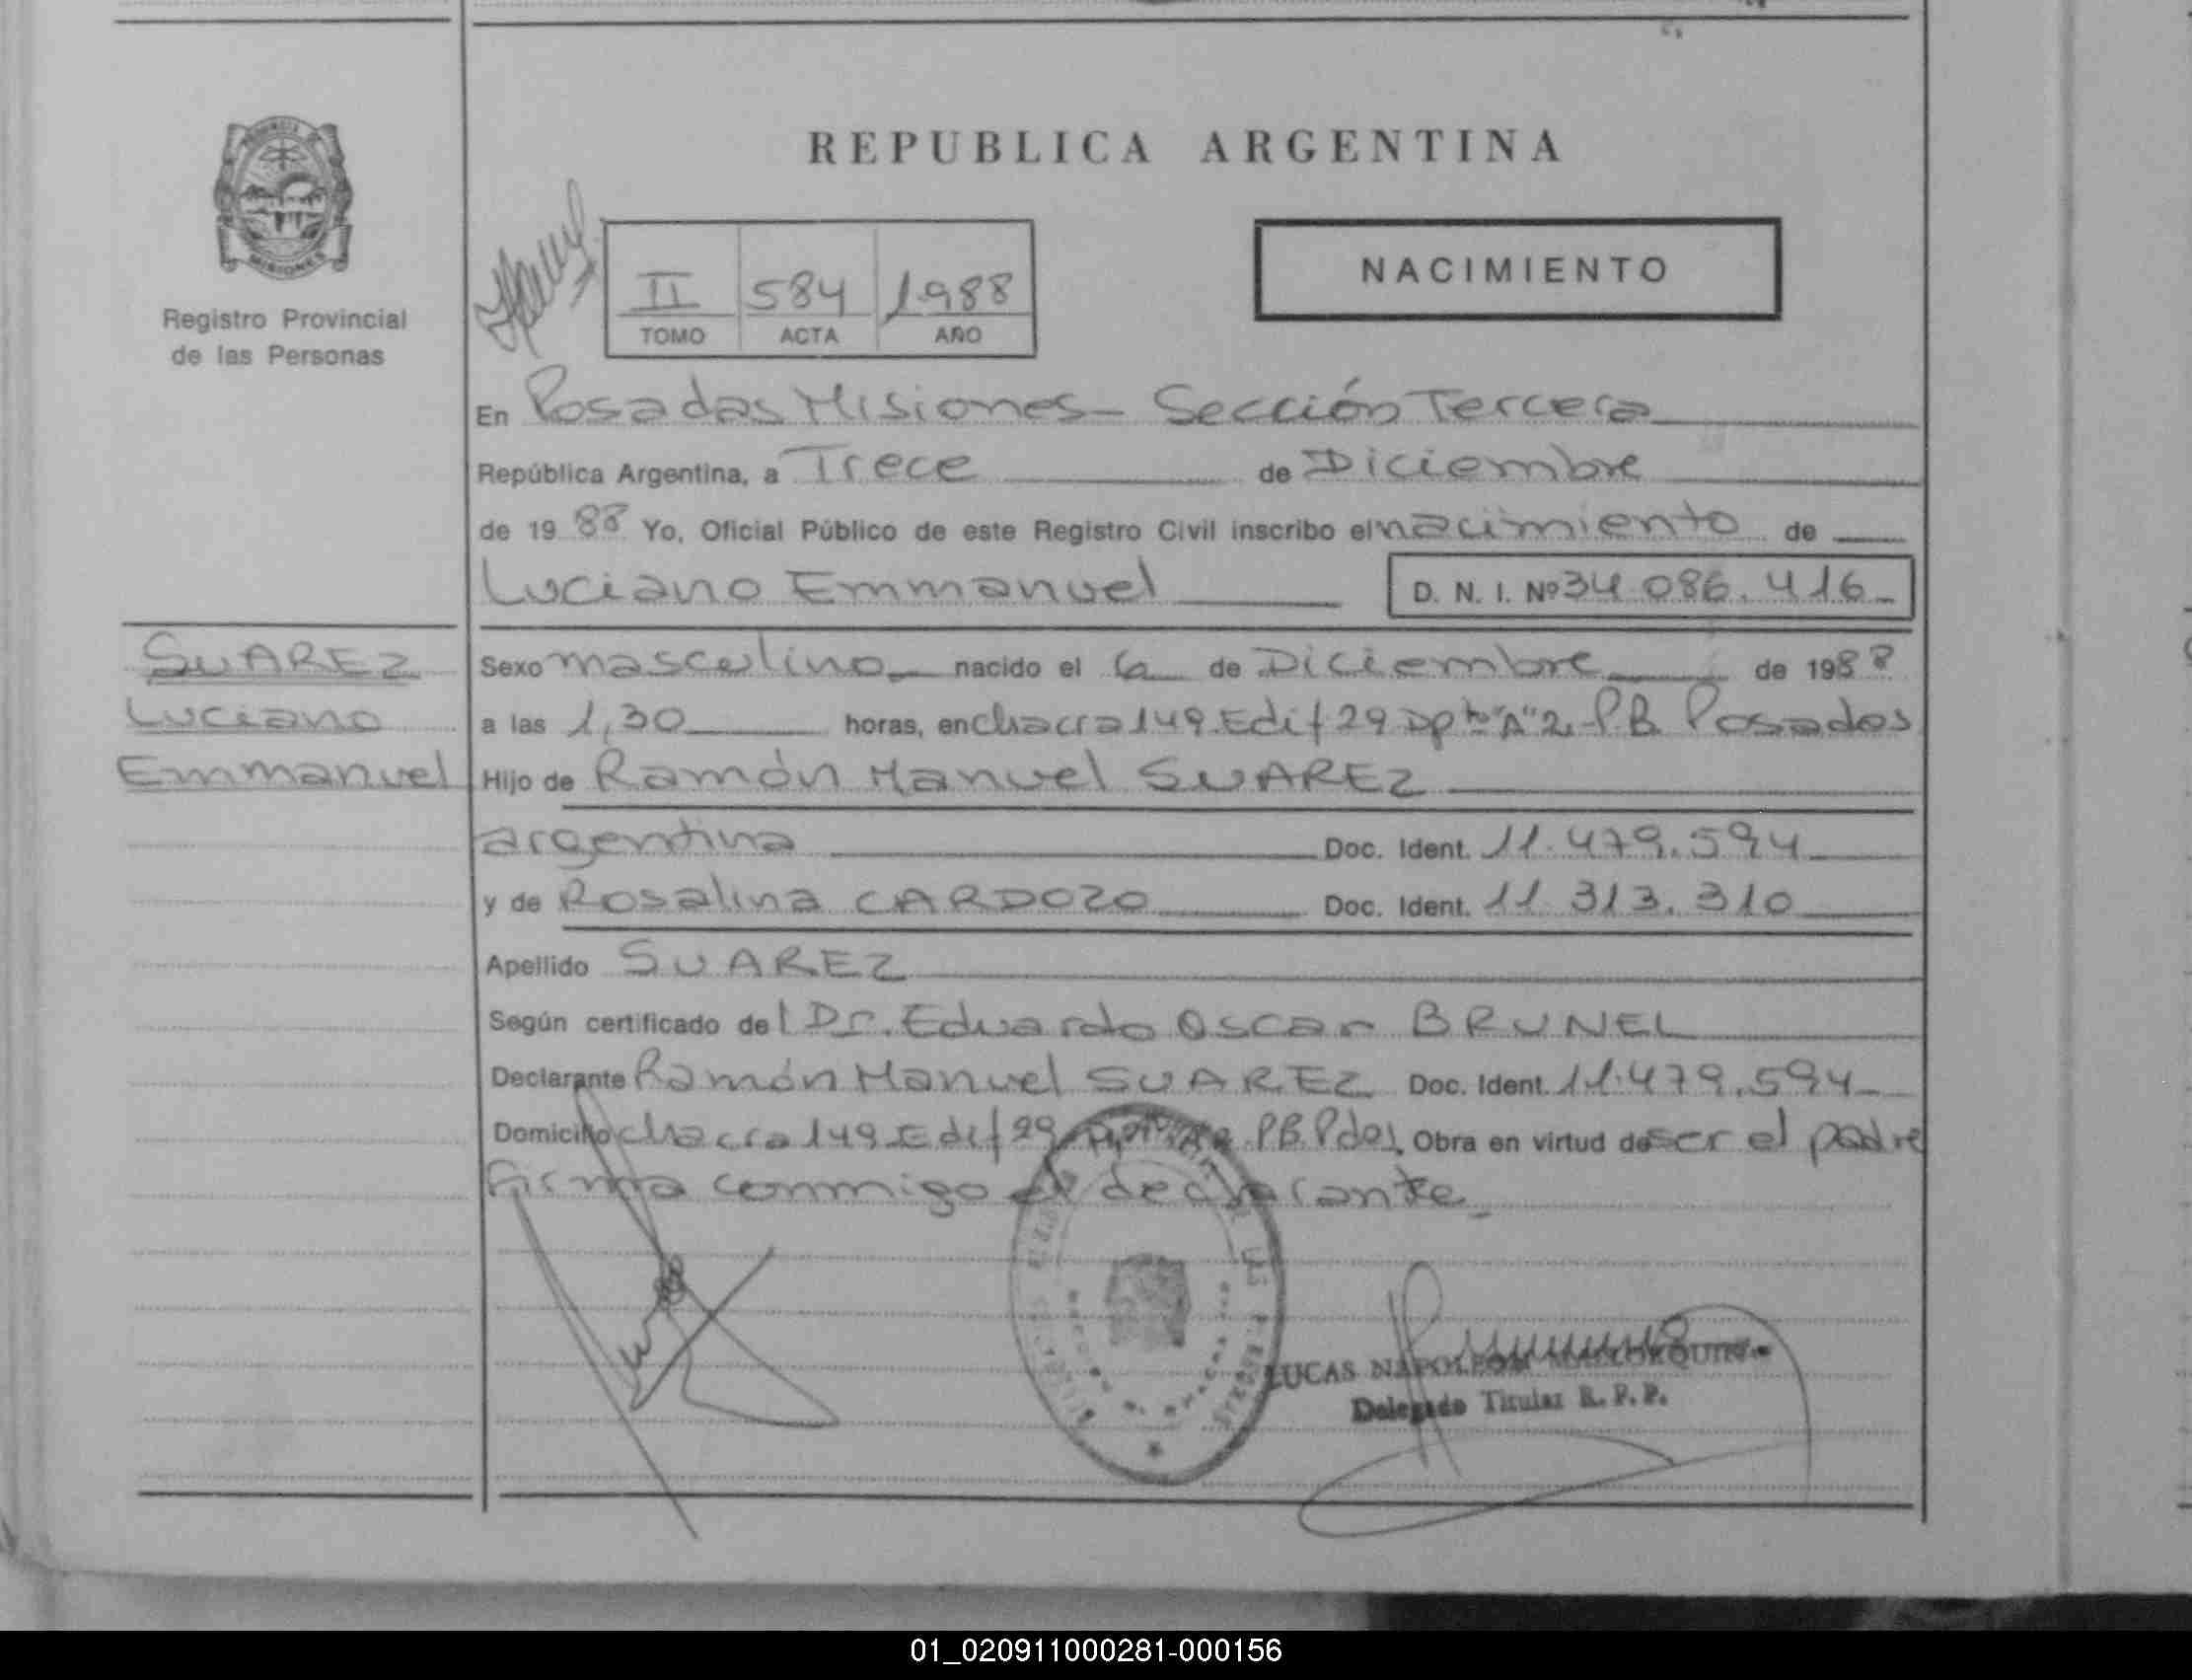 REPUBLICA ARGENTINA
PROVINCIA DE
MISIONES
Registro Provincial
de las Personas
II 584 1988
TOMO ACTA AÑO
NACIMIENTO
En Posadas Misiones - Sección Tercera
República Argentina, a Trece de Diciembre
de 19 88 Yo, Oficial Público de este Registro Civil inscribo el nacimiento de
Luciano Emmanuel D. N. I. Nº 34.086.416
SUAREZ
Luciano
Emmanuel
Sexo masculino nacido el 6 de Diciembre de 1988
a las 1,30 horas, en chacra 149 Edif 29 Dpto "A" 2 - P.B. Posadas
Hijo de Ramón Manuel SUAREZ
argentina Doc. Ident. 11.479.594
y de Rosalina CARDOZO Doc. Ident. 11.313.310
Apellido SUAREZ
Según certificado del Dr. Eduardo Oscar BRUNEL
Declarante Ramón Manuel SUAREZ Doc. Ident. 11.479.594
Domicilio chacra 149 Edif 29 P.B. Pdas, Obra en virtud de ser el padre
Firma conmigo el declarante
LUCAS NAPOLEON
Delegado Titular R. P. P.
01_020911000281-000156